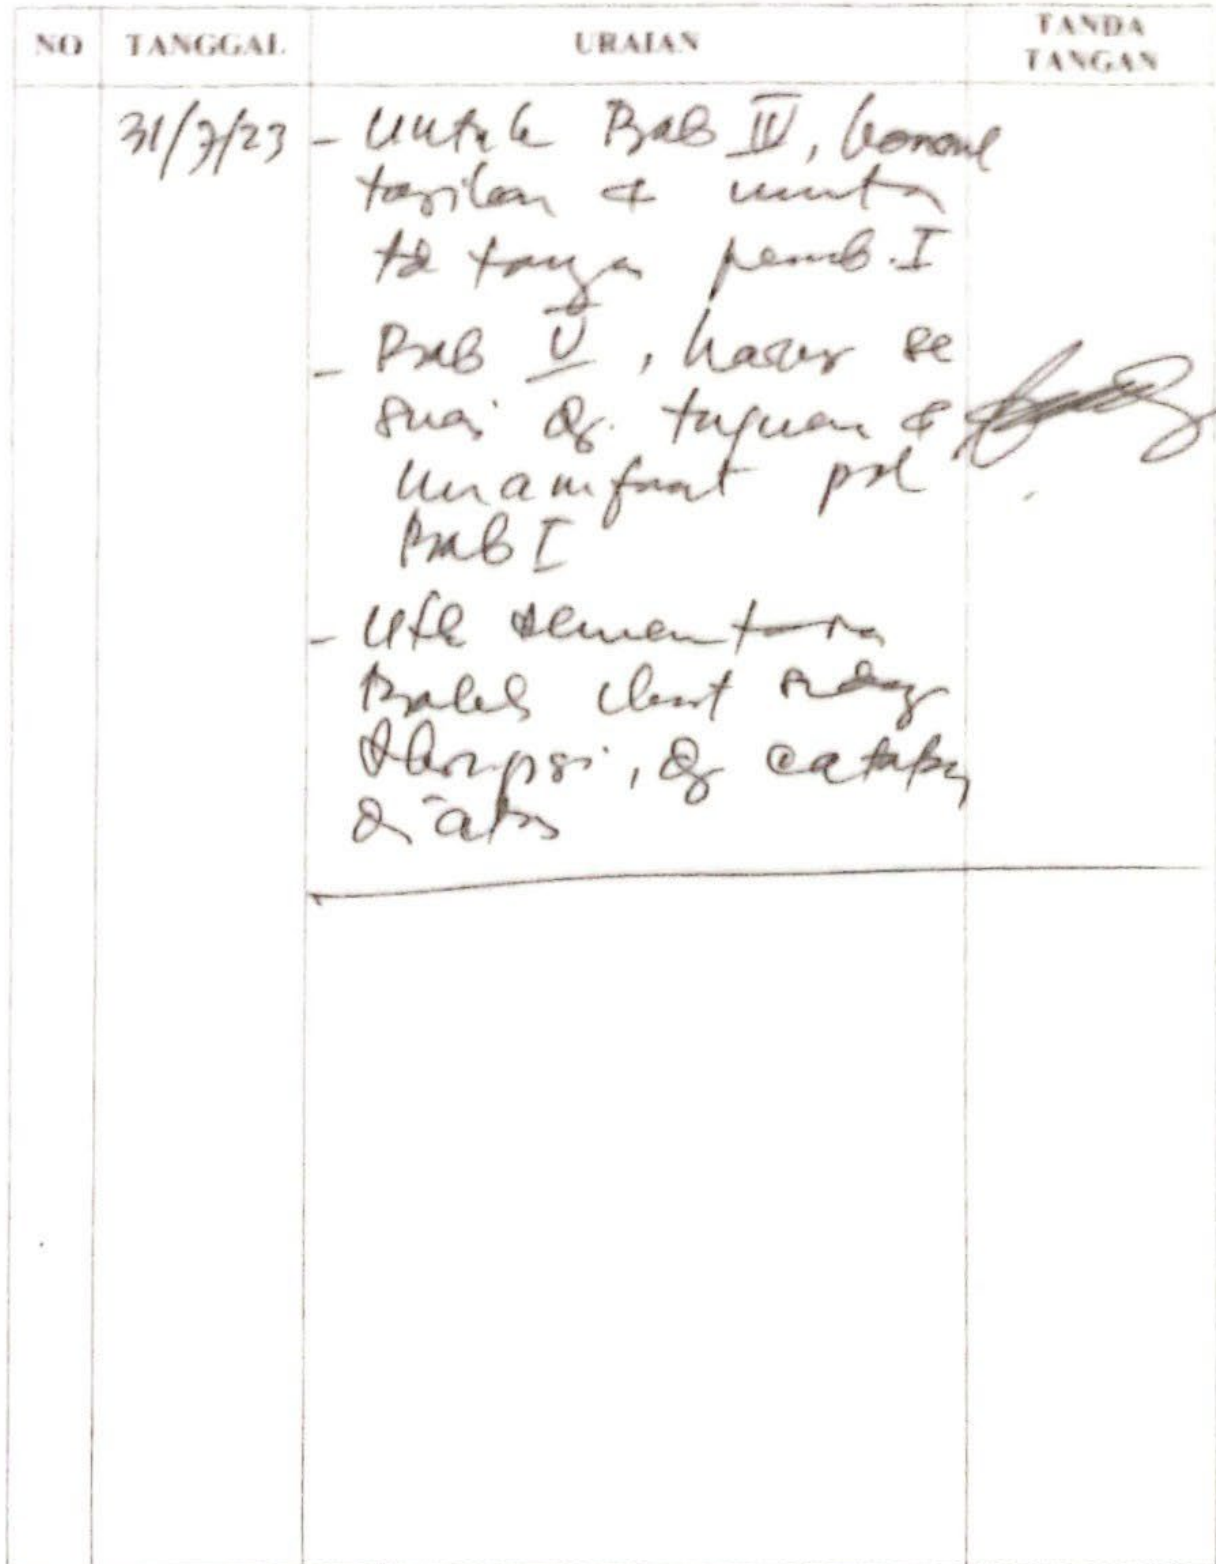 NO TANGGAL URAIAN TANDA TANGAN
31/7/23 - Untuk Bab IV, konsul
tasikan & minta
td tangan pemb. I
- Bab V, harus se
suai dg. tujuan &
manfaat pd
Bab I
- Utk sementara
Boleh sidang
skripsi, dg catatan
di atas